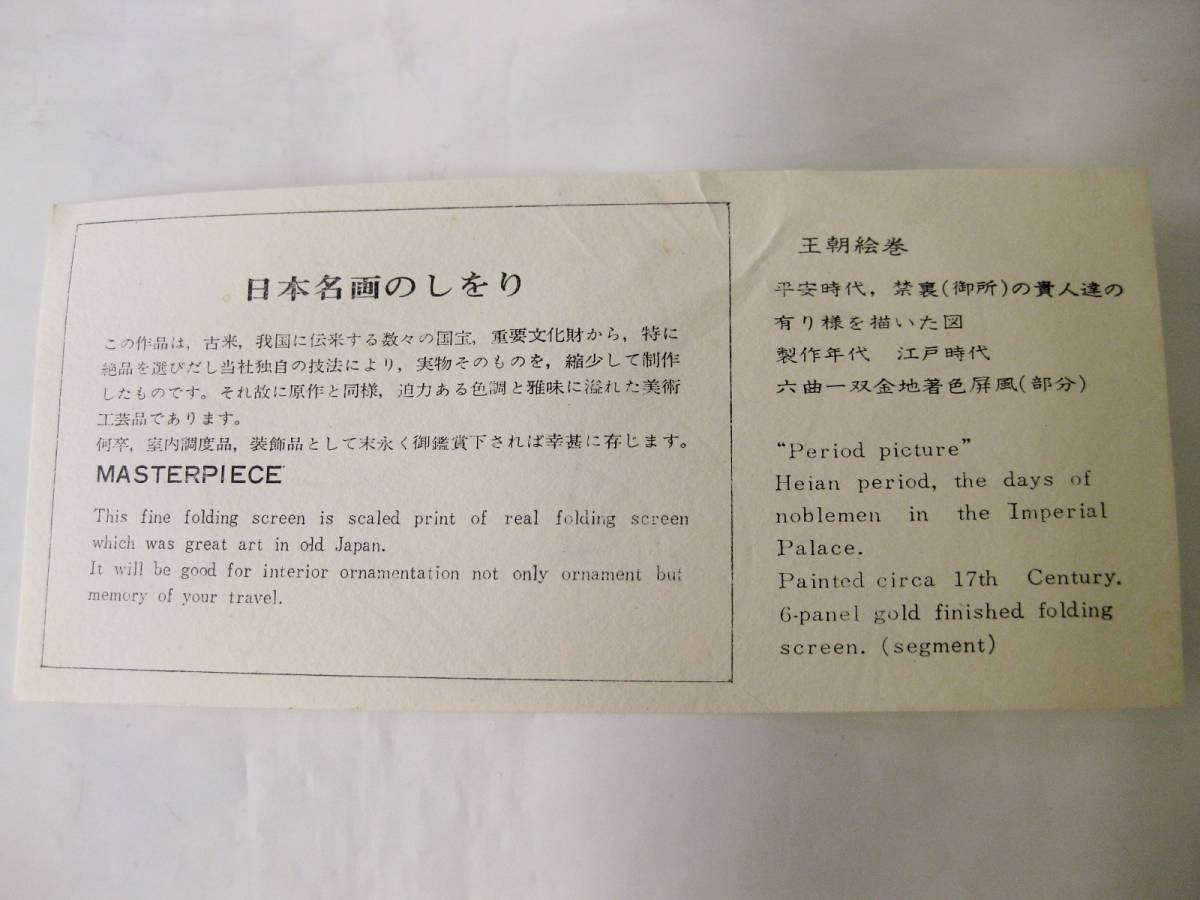 日本名画のしをり
この作品は，古来，我国に伝来する数々の国宝，重要文化財から，特に
絶品を選びだし当社独自の技法により，実物そのものを，縮少して制作
したものです。それ故に原作と同様，迫力ある色調と雅味に溢れた美術
工芸品であります。
何卒，室内調度品，装飾品として末永く御鑑賞下されば幸甚に存じます。
MASTERPIECE
This fine folding screen is scaled print of real folding screen
which was great art in old Japan.
It will be good for interior ornamentation not only ornament but
memory of your travel.
王朝絵巻
平安時代，禁裏(御所)の貴人達の
有り様を描いた図
製作年代　江戸時代
六曲一双金地著色屏風(部分)
“Period picture”
Heian period, the days of
noblemen in the Imperial
Palace.
Painted circa 17th Century.
6-panel gold finished folding
screen. (segment)